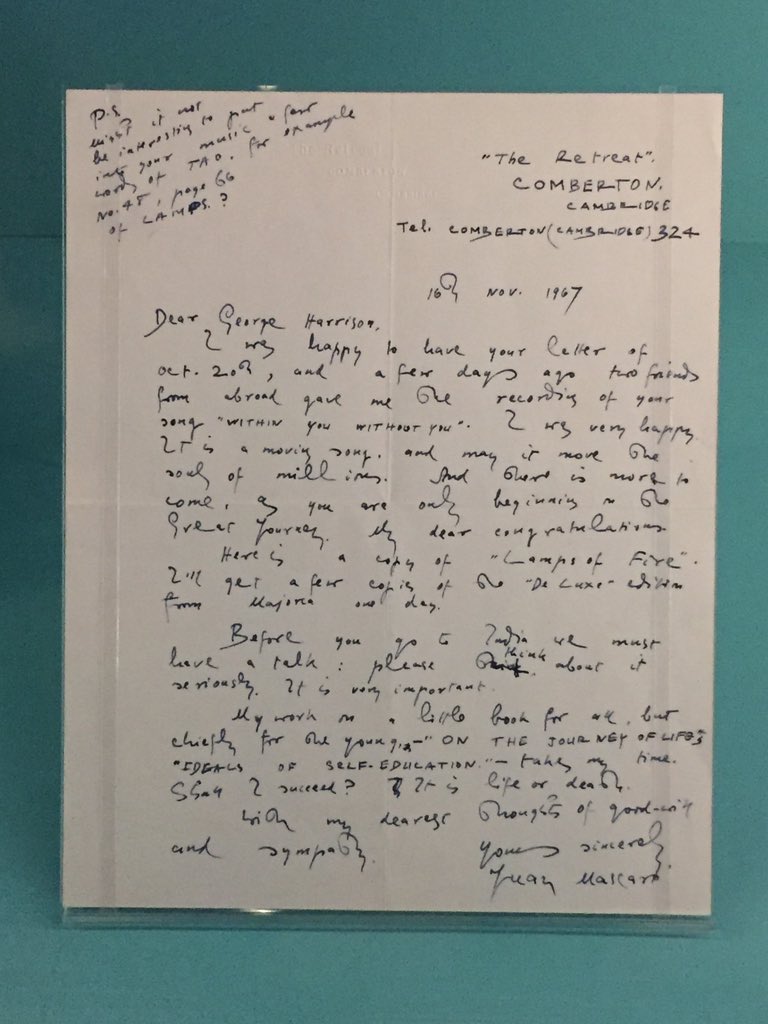 P.S.
might it not
be interesting to put
into your music a few
words of TAO. for example
No. 48, page 66
of LAMPS.?
"The Retreat".
COMBERTON.
CAMBRIDGE
Tel. COMBERTON (CAMBRIDGE) 324
16th Nov. 1967
Dear George Harrison,
I was happy to have your letter of
Oct. 20th, and a few days ago two friends
from abroad gave me the recording of your
song "WITHIN YOU WITHOUT YOU". I was very happy.
It is a moving song. and may it move the
souls of millions. And there is more to
come, as you are only beginning on the
Great Journey. My dear congratulations
Here is a copy of "Lamps of Fire".
I'll get a few copies of the "De Luxe" edition
from Majorca one day.
Before you go to India we must
have a talk : please think about it
seriously. It is very important.
My work on a little book for all, but
chiefly for the young, – "ON THE JOURNEY OF LIFE"
"IDEALS OF SELF-EDUCATION." – takes my time.
Shall I succeed? It is life or death.
With my dearest thoughts of good-will
and sympathy. Yours sincerely,
Juan Mascaró